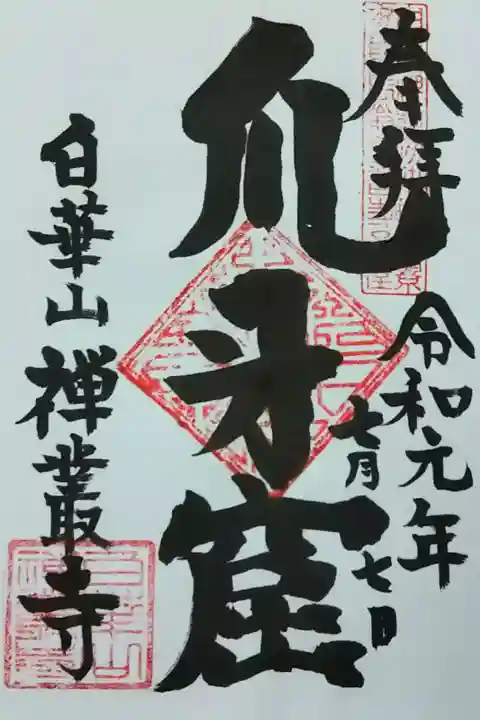 奉拝
令和元年
七月七日
爪牙窟
白華山禅叢寺